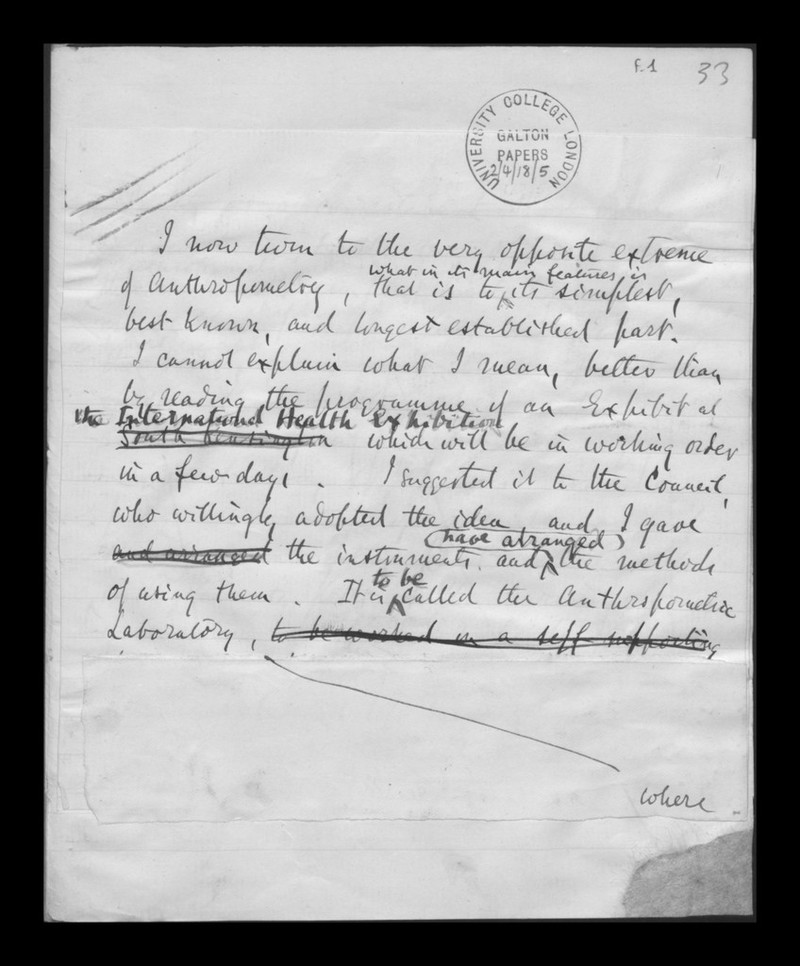 f.1 33
UNIVERSITY COLLEGE LONDON
GALTON
PAPERS
2/4/18/5
I now turn to the very opposite extreme
what in its main features is
of Anthropometry, that is to its simplest,
best known, and longest established part.
I cannot explain what I mean, better than
by reading the programme of an Exhibit at
the International Health Exhibition
South Kensington which will be in working order
in a few days. I suggested it to the Council,
who willingly adopted the idea, and I gave
have arranged
and arranged the instruments and the methods
to be
of using them. It is called the Anthropometric
Laboratory, to be worked in a self supporting
where